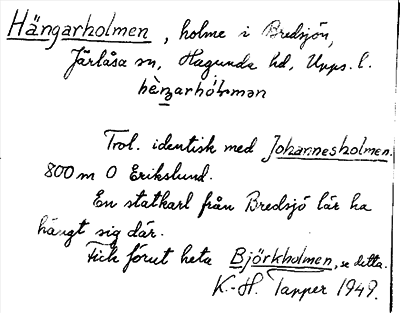 Hängarholmen, holme i Bredsjön,
Järlåsa sn, Hagunda hd, Upps. l.
hèŋarhól̀mən
Trol. identisk med Johannesholmen.
800 m O Erikslund.
En statkarl från Bredsjö lär ha
hängt sig där.
Fick förut heta Björkholmen, se detta.
K.-H. Tapper 1949.